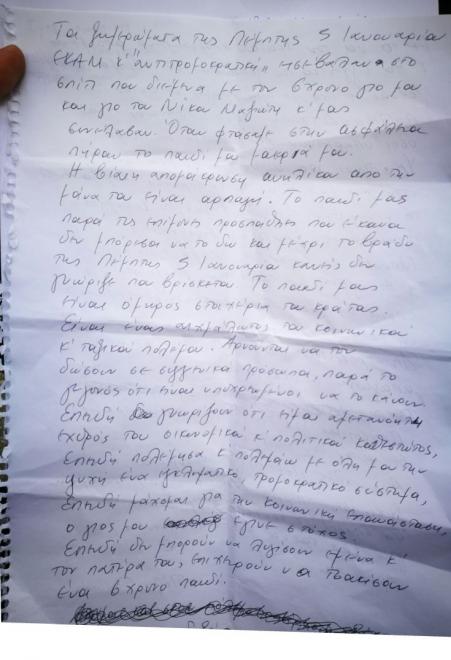 Τα ξημερώματα της Πέμπτης 5 Ιανουαρίου
ΕΚΑΜ κ' "αντιτρομοκρατική" εισέβαλαν στο
σπίτι που διέμενα με τον 6χρονο γιο μου
και γιο του Νίκου Μαζιώτη κ' μας
συνέλαβαν. Όταν φτάσαμε στην ασφάλεια
πήραν το παιδί μου μακριά μου.
Η βίαιη απομάκρυνση ανηλίκου από την
μάνα του είναι αρπαγή. Το παιδί μας
παρά τις επίμονες προσπάθειες που έκανα
δεν μπόρεσα να το δω και μέχρι το βράδυ
της Πέμπτης 5 Ιανουαρίου κανείς δεν
γνώριζε που βρίσκεται. Το παιδί μας
είναι όμηρος στα χέρια του κράτους.
Είναι ένας αιχμάλωτος του κοινωνικού
κ' ταξικού πολέμου. Αρνούνται να τον
δώσουν σε συγγενικά πρόσωπα, παρά το
γεγονός ότι είναι υποχρεωμένοι να το κάνουν.
Επειδή γνωρίζουν ότι είμαι αμετανόητη
εχθρός του οικονομικού κ' πολιτικού καθεστώτος,
επειδή πολέμησα κ' πολεμάω με όλη μου την
ψυχή ένα εγκληματικό, τρομοκρατικό σύστημα,
επειδή μάχομαι για την κοινωνική επανάσταση,
ο γιος μου έγινε στόχος.
Επειδή δεν μπορούν να λυγίσουν εμένα κ'
τον πατέρα του, επιχειρούν να τσακίσουν
ένα 6χρονο παιδί.